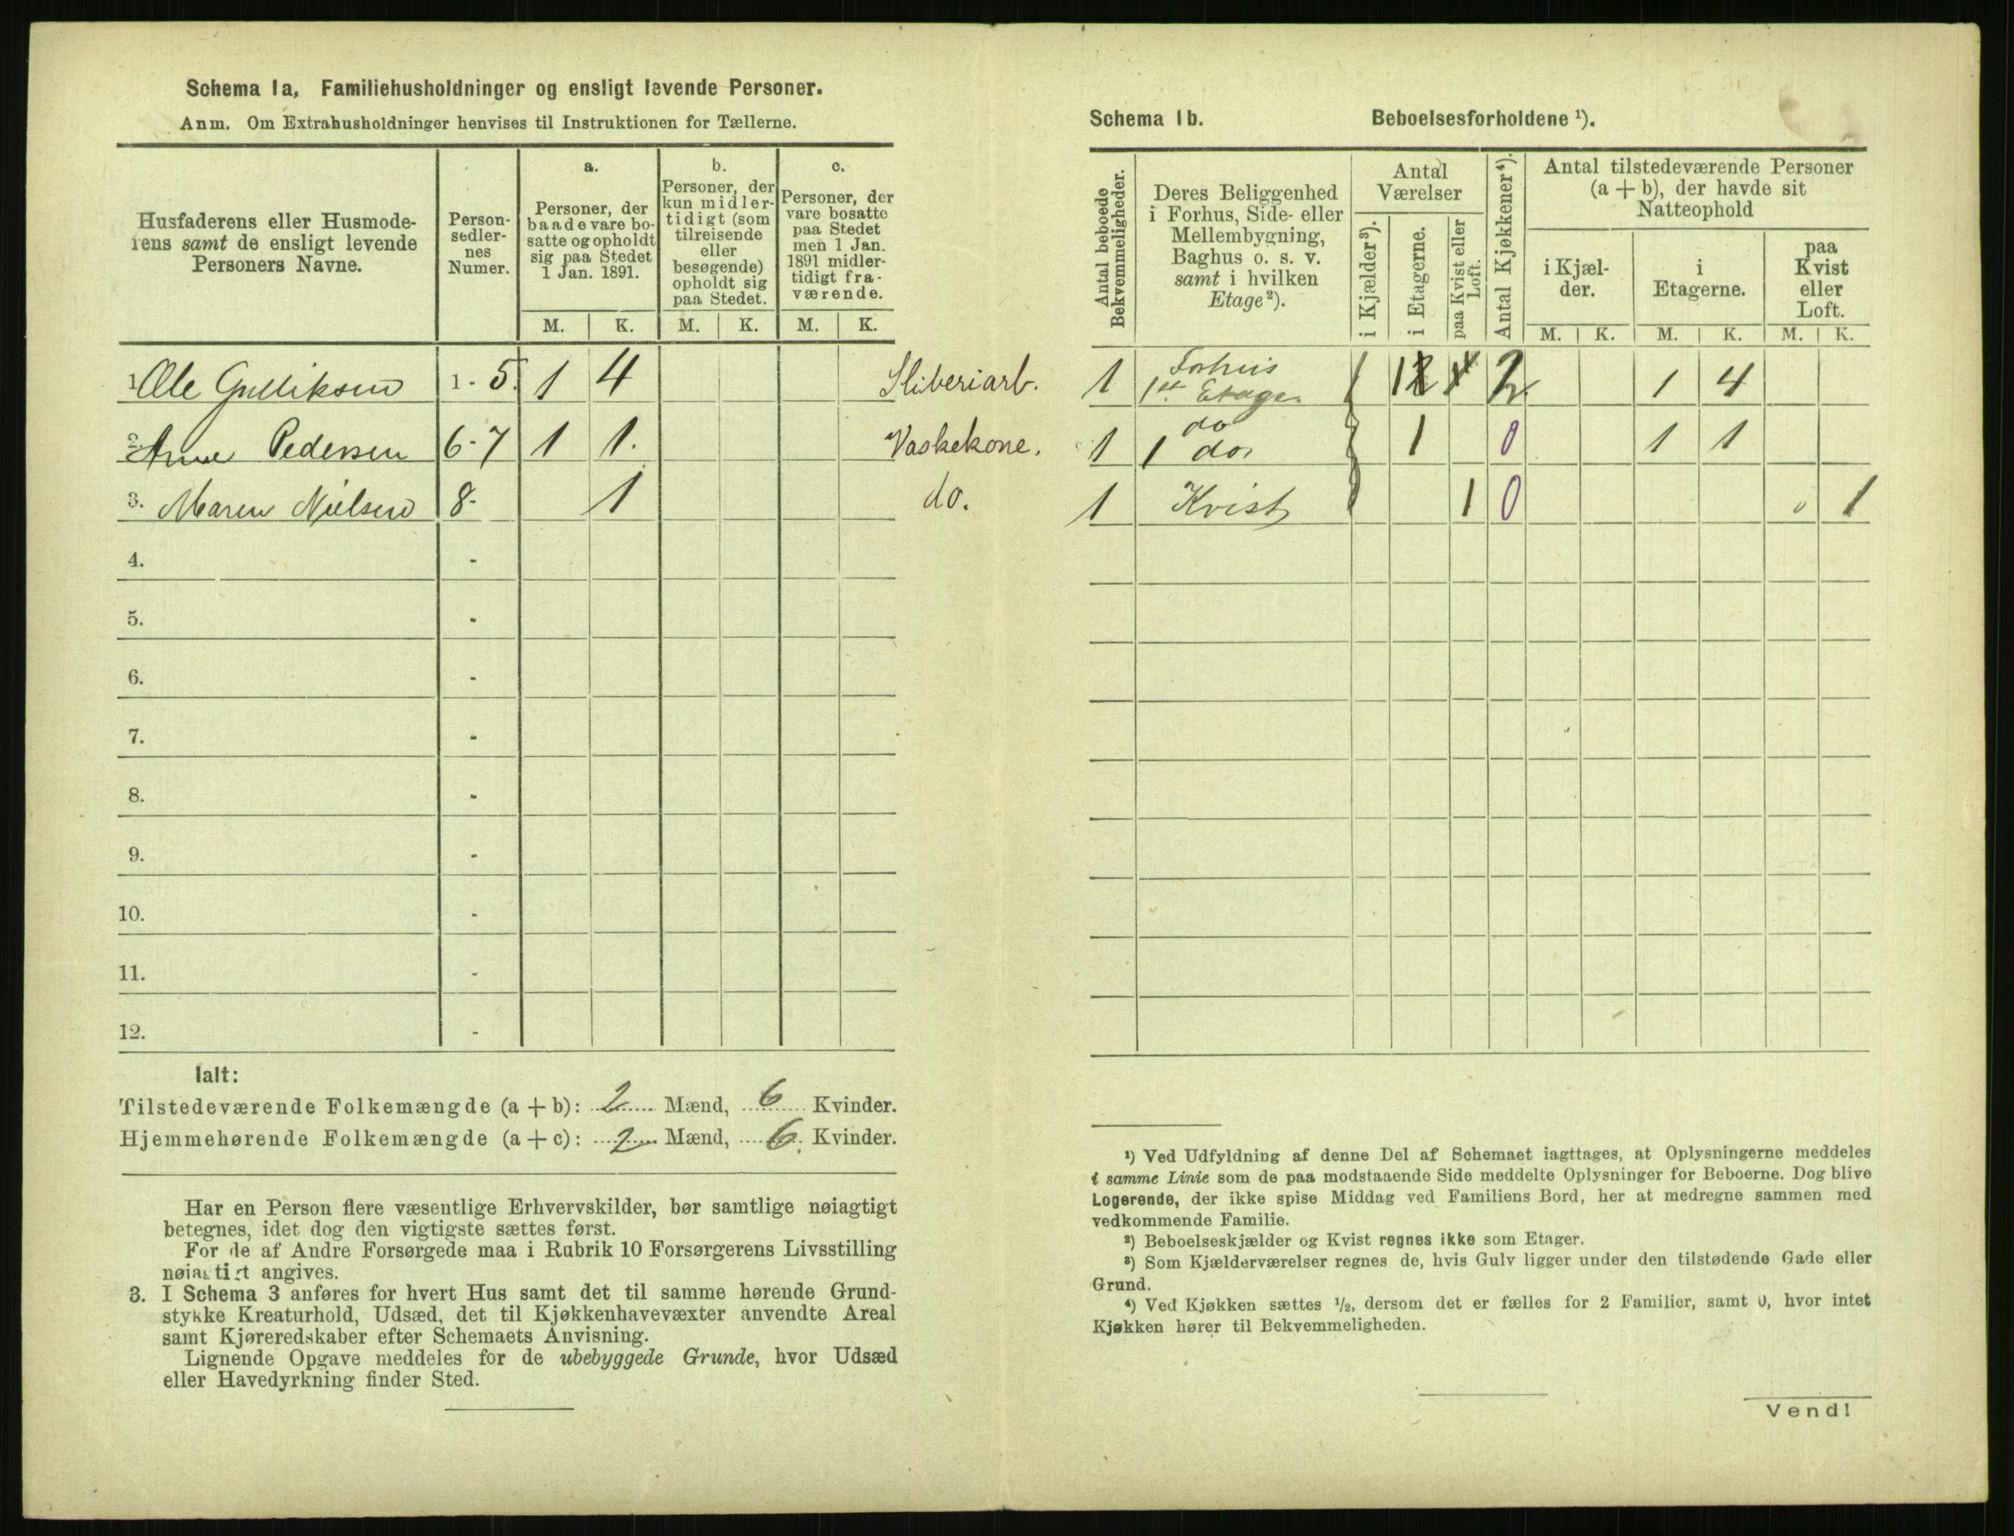 Schema 1a, Familiehusholdninger og ensligt levende Personer.
Anm. Om Extrahusholdninger henvises til Instruktionen for Tællerne.
Husfaderens eller Husmode-
rens samt de ensligt levende
Personers Navne.
Person-
sedler-
nes
Numer.
a.
Personer, der
baade vare bo-
satte og opholdt
sig paa Stedet
1 Jan. 1891.
b.
Personer, der
kun midler-
tidigt (som
tilreisende
eller
besøgende)
opholdt sig
paa Stedet.
c.
Personer, der
vare bosatte
paa Stedet
men 1 Jan.
1891 midler-
tidigt fra-
værende.
M. K. M. K. M. K.
1. Ole Gulliksen 1 - 5. 1 4 Sliberiarb.
2. Anne Pedersen 6 - 7 1 1. Vaskekone.
3. Maren Nielsen 8 - 1 do.
4. -
5. -
6. -
7. -
8. -
9. -
10. -
11. -
12. -
Ialt:
Tilstedeværende Folkemængde (a + b): 2 Mænd, 6 Kvinder.
Hjemmehørende Folkemængde (a + c): 2 Mænd, 6. Kvinder.
Har en Person flere væsentlige Erhvervskilder, bør samtlige nøiagtigt
betegnes, idet dog den vigtigste sættes først.
For de af Andre Forsørgede maa i Rubrik 10 Forsørgerens Livsstilling
nøiagtigt angives.
3. I Schema 3 anføres for hvert Hus samt det til samme hørende Grund-
stykke Kreaturhold, Udsæd, det til Kjøkkenhavevæxter anvendte Areal
samt Kjøreredskaber efter Schemaets Anvisning.
Lignende Opgave meddeles for de ubebyggede Grunde, hvor Udsæd
eller Havedyrkning finder Sted.
Schema 1b. Beboelsesforholdene ¹).
Antal beboede
Bekvemmeligheder.
Deres Beliggenhed
i Forhus, Side- eller
Mellembygning,
Baghus o. s. v.
samt i hvilken
Etage²).
Antal
Værelser
i Kjælder³).
i Etagerne.
paa Kvist eller
Loft.
Antal Kjøkkener⁴).
Antal tilstedeværende Personer
(a + b), der havde sit
Natteophold
i Kjæl-
der.
i
Etagerne.
paa
Kvist
eller
Loft.
M. K. M. K. M. K.
1 Forhus
1ste Etage. 2 1 4
1 do
1 do. 1 0 1 1
1 Kvist 1 0 1
¹) Ved Udfyldning af denne Del af Schemaet iagttages, at Oplysningerne meddeles
i samme Linie som de paa modstaaende Side meddelte Oplysninger for Beboerne. Dog blive
Logerende, der ikke spise Middag ved Familiens Bord, her at medregne sammen med
vedkommende Familie.
²) Beboelseskjælder og Kvist regnes ikke som Etager.
³) Som Kjælderværelser regnes de, hvis Gulv ligger under den tilstødende Gade eller
Grund.
⁴) Ved Kjøkken sættes ½, dersom det er fælles for 2 Familier, samt 0, hvor intet
Kjøkken hører til Bekvemmeligheden.
Vend!